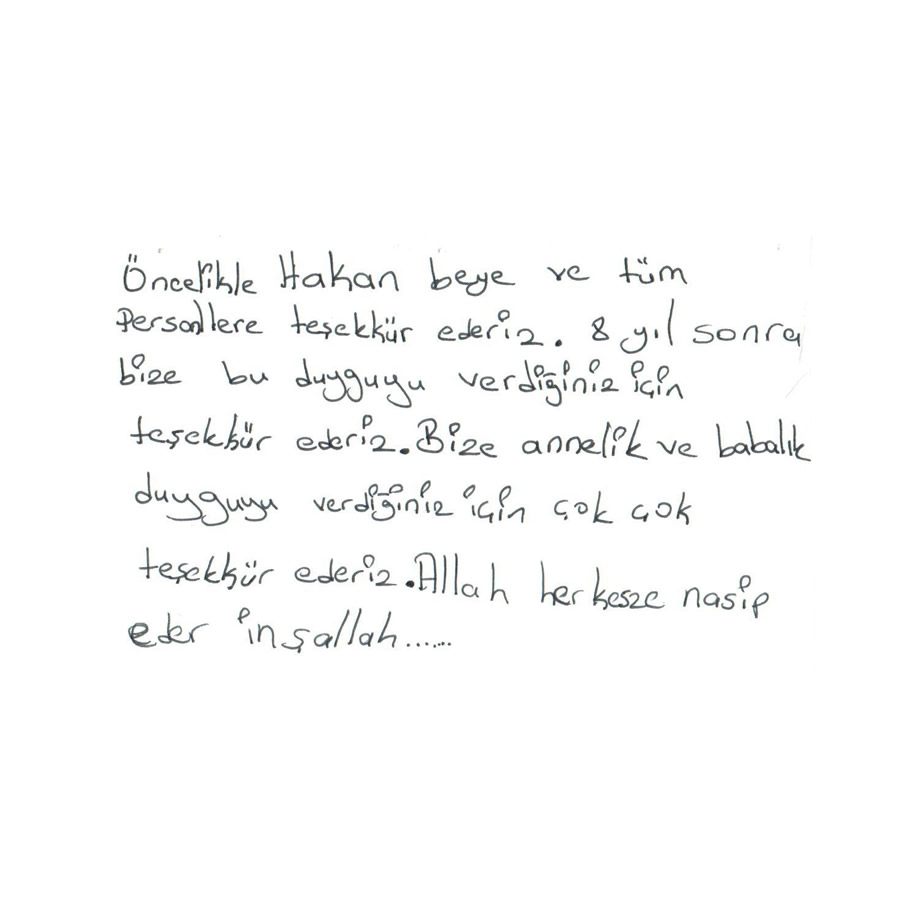 Öncelikle Hakan beye ve tüm
Personllere teşekkür ederiz. 8 yıl sonra
bize bu duyguyu verdiğiniz için
teşekkür ederiz. Bize annelik ve babalık
duyguyu verdiğiniz için çok çok
teşekkür ederiz. Allah herkesze nasip
eder inşallah......